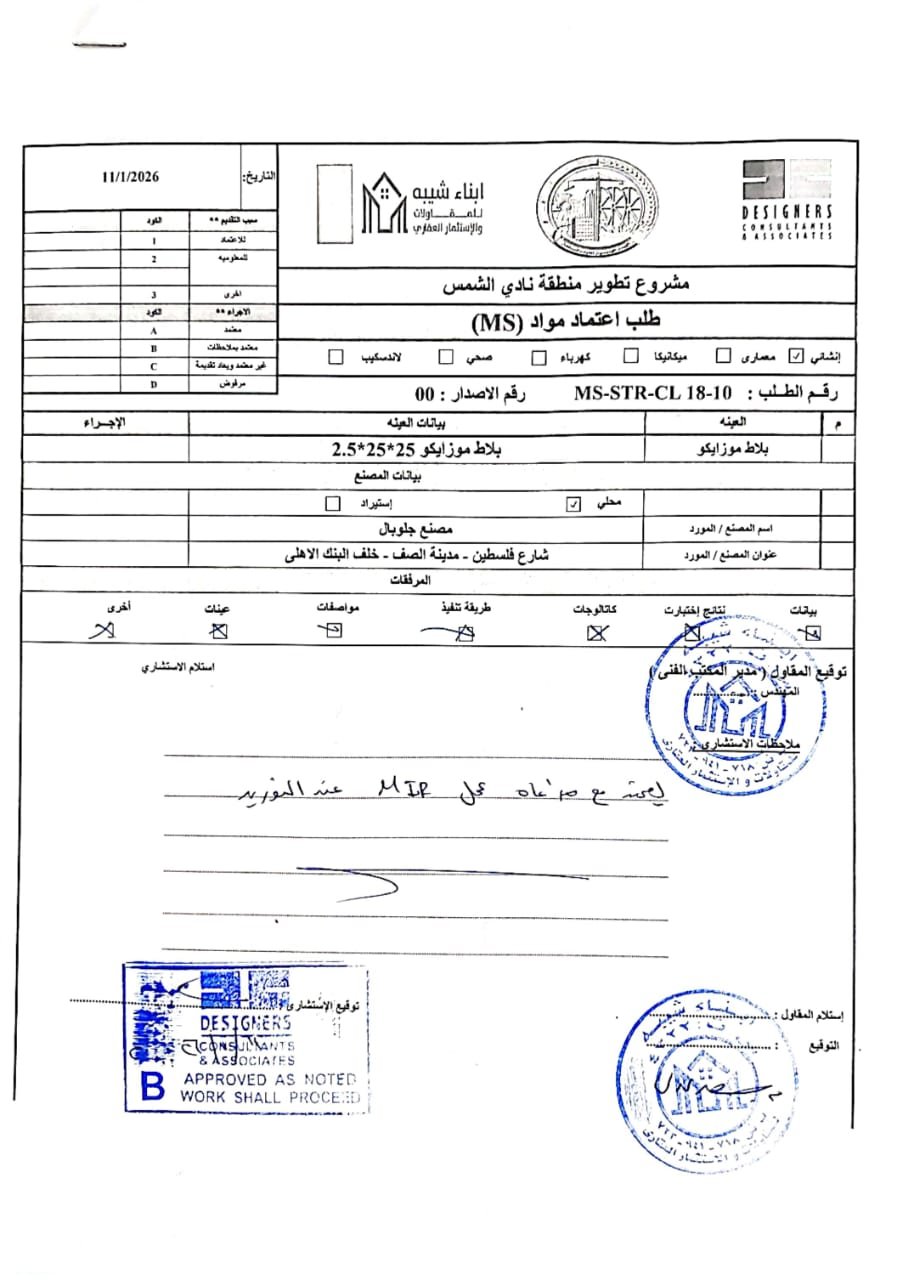 التاريخ: 11/1/2026
سبب التقديم ** الكود
للاعتماد 1
للمعلوميه 2
اخرى 3
الاجراء ** الكود
معتمد A
معتمد بملاحظات B
غير معتمد ويعاد تقديمة C
مرفوض D
ابناء شيبه
للمقاولات
والإستثمار العقاري
DESIGNERS
CONSULTANTS
& ASSOCIATES
مشروع تطوير منطقة نادي الشمس
طلب اعتماد مواد (MS)
إنشاني معمارى ميكانيكا كهرباء صحي لاندسكيب
رقم الطلب : MS-STR-CL 18-10 رقم الاصدار : 00
م العينه بيانات العينه الإجراء
بلاط موزايكو بلاط موزايكو 25*25*2.5
بيانات المصنع
محلي إستيراد
اسم المصنع / المورد مصنع جلوبال
عنوان المصنع / المورد شارع فلسطين - مدينة الصف - خلف البنك الاهلى
المرفقات
بيانات نتائج إختبارت كتالوجات طريقة تنفيذ مواصفات عينات أخرى
توقيع المقاول ( مدير المكتب الفنى ) استلام الاستشاري
المهندس :
ملاحظات الاستشارى :
مع عمل MIR عند التوريد
إستلام المقاول :
التوقيع :
توقيع الإستشارى :
DESIGNERS
CONSULTANTS
& ASSOCIATES
B APPROVED AS NOTED
WORK SHALL PROCEED